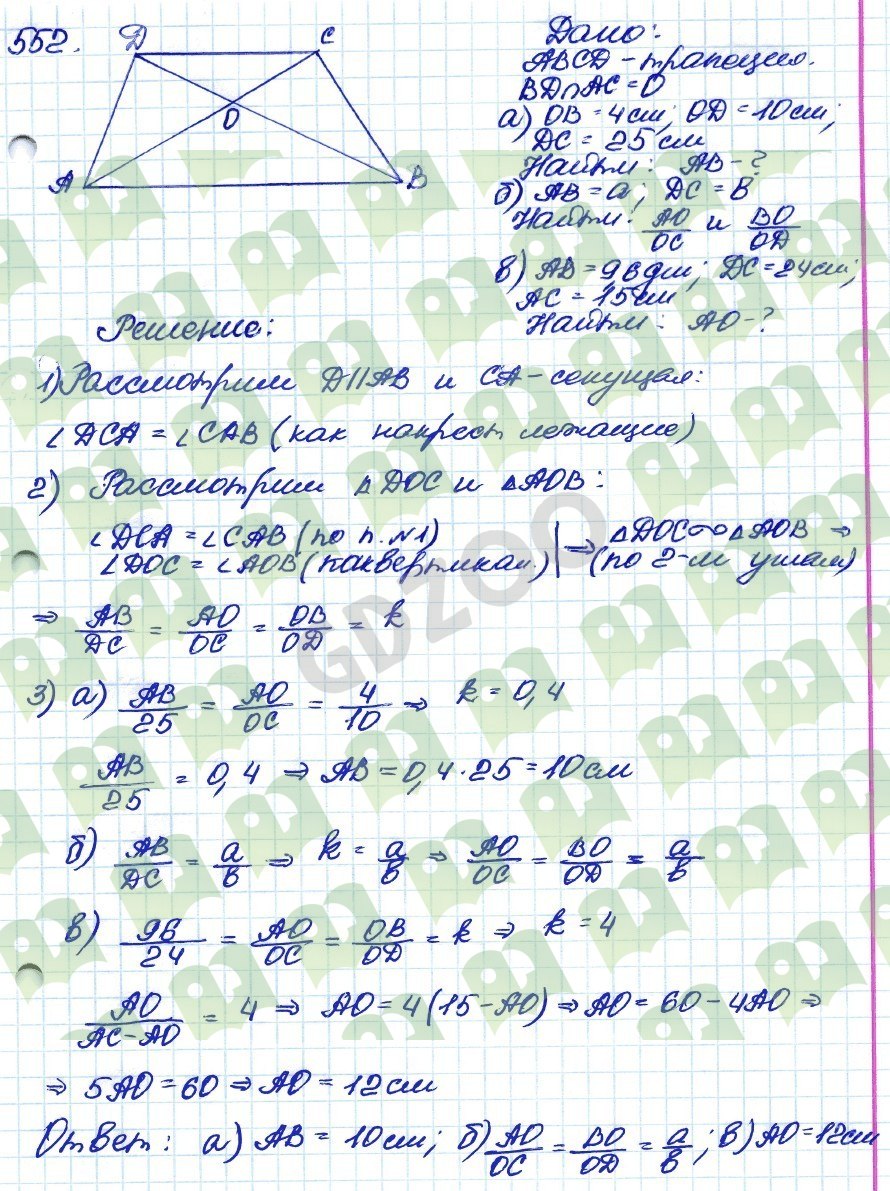 552.
D C
O
A B
Дано:
ABCD - трапеция.
BD∩AC = O
а) OB = 4 см; OD = 10 см;
DC = 25 см
Найти: AB - ?
б) AB = a; DC = B
Найти: AO/OC и BO/OD
в) AB = 96 дм; DC = 24 см;
AC = 15 см
Найти: AO - ?
Решение:
1) Рассмотрим D||AB и CA - секущая:
∠DCA = ∠CAB (как накрест лежащие)
2) Рассмотрим △DOC и △AOB:
∠DCA = ∠CAB (по п. №1)
∠DOC = ∠AOB (как вертикал.) | ⇒ △DOC ∾ △AOB ⇒ (по 2-м углам)
⇒ AB/DC = AO/OC = OB/OD = k
3) а) AB/25 = AO/OC = 4/10 ⇒ k = 0,4
AB/25 = 0,4 ⇒ AB = 0,4·25 = 10 см
б) AB/DC = a/в ⇒ k = a/в ⇒ AO/OC = BO/OD = a/в
в) 96/24 = AO/OC = OB/OD = k ⇒ k = 4
AO/AC-AO = 4 ⇒ AO = 4(15-AO) ⇒ AO = 60 - 4AO ⇒
⇒ 5AO = 60 ⇒ AO = 12 см
Ответ: а) AB = 10 см; б) AO/OC = BO/OD = a/в; в) AO = 12 см
GDZOO